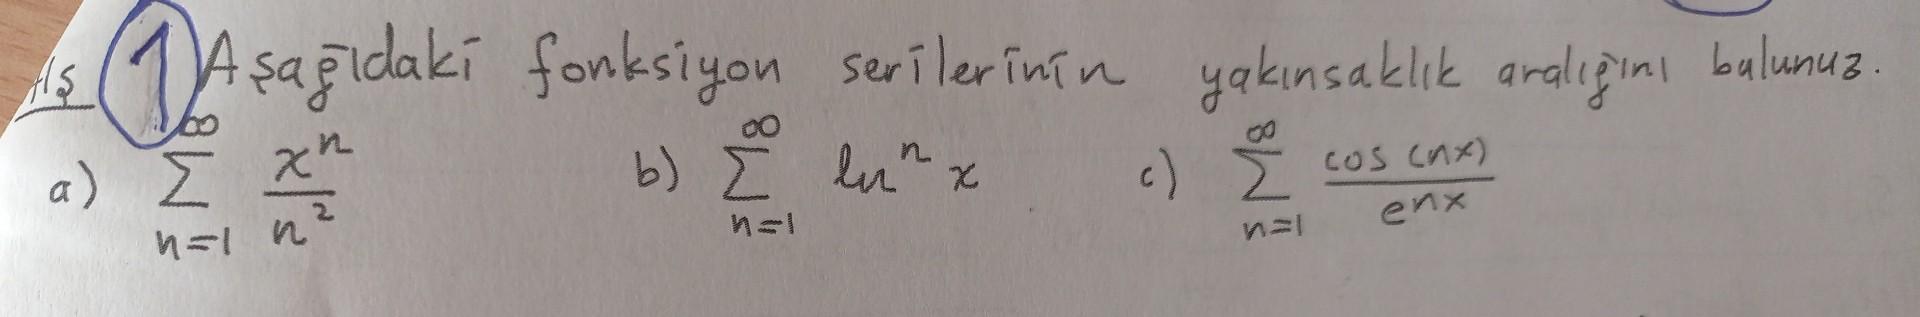 Hş 1 Aşağıdaki fonksiyon serilerinin yakınsaklık aralığını bulunuz.
a) ∑_{n=1}^{∞} x^n / n^2 b) ∑_{n=1}^{∞} ln^n x c) ∑_{n=1}^{∞} cos(nx) / enx